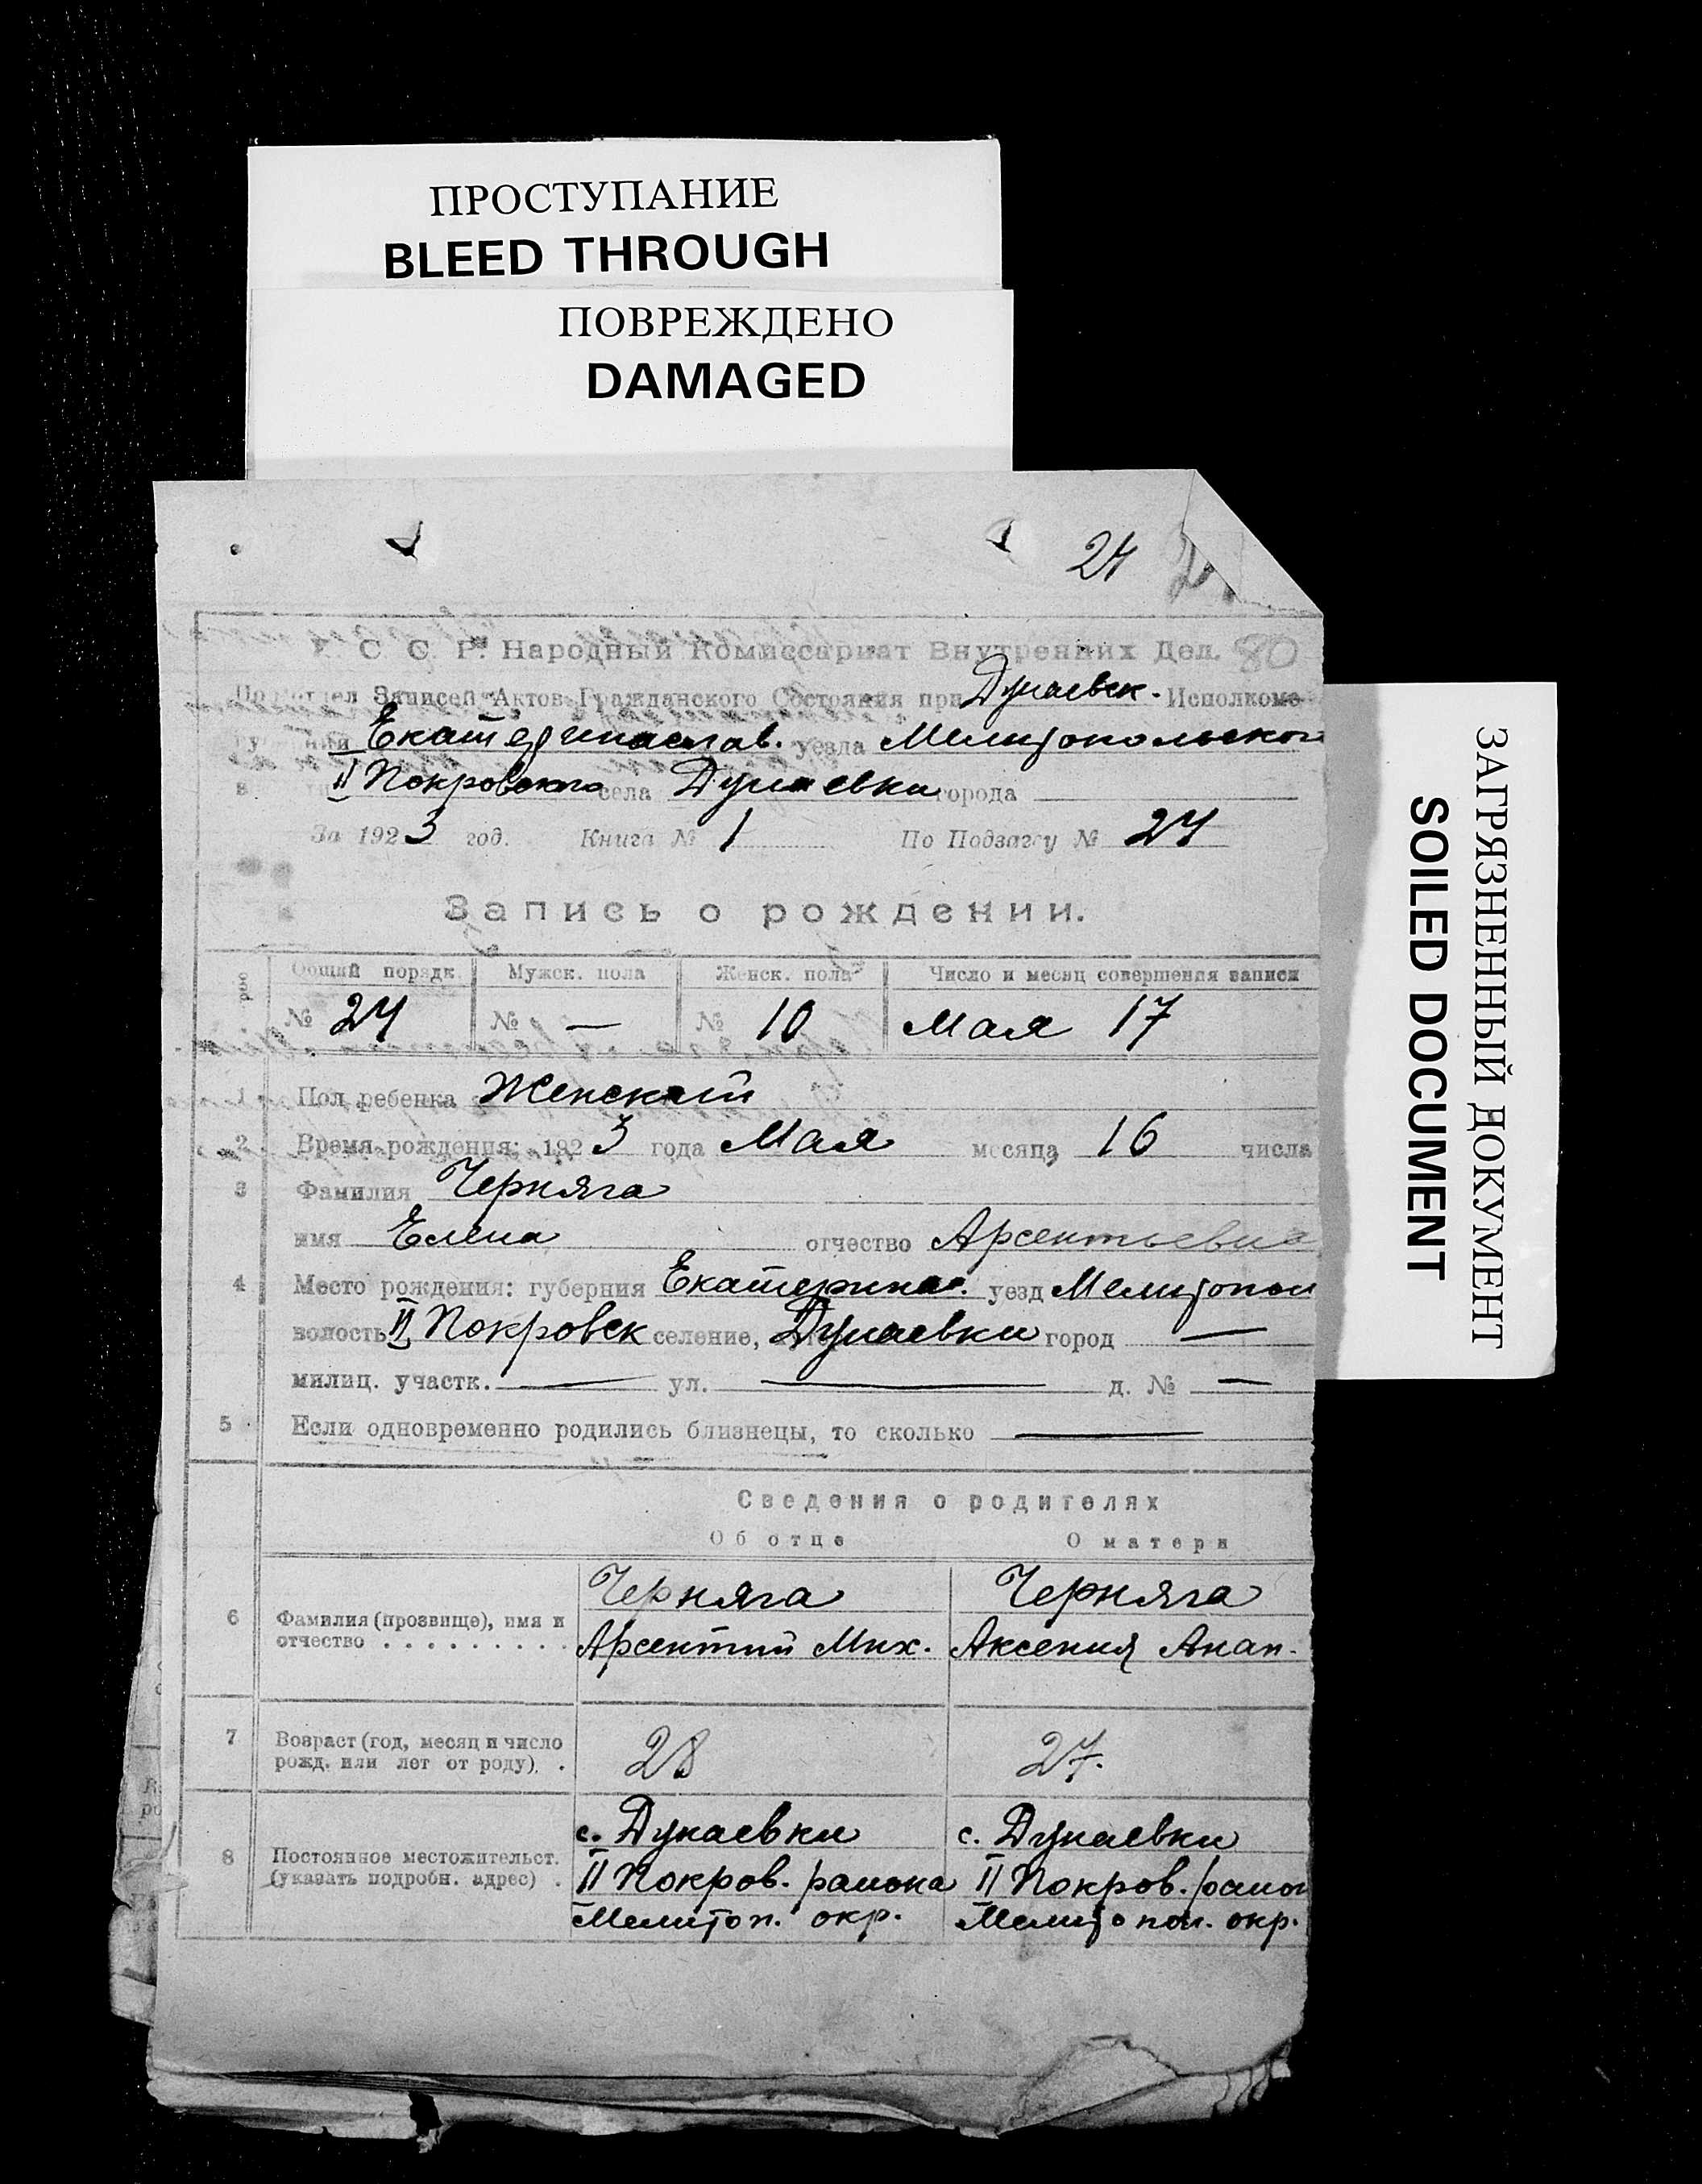 ПРОСТУПАНИЕ
BLEED THROUGH
ПОВРЕЖДЕНО
DAMAGED
ЗАГРЯЗНЕННЫЙ ДОКУМЕНТ
SOILED DOCUMENT
24
У. С. С. Р. Народный Комиссариат Внутренних Дел. 80
Записей Актов Гражданского Состояния при Дунаевск. Исполкоме
губернии Екатеринослав. уезда Мелитопольского
II Покровского села Дунаевки города
За 1923 год. Книга № 1 По Подзагсу № 24
Запись о рождении.
Общий порядк. Мужск. пола Женск. пола Число и месяц совершения записи
№ 24 № — № 10 Мая 17
1 Пол ребенка Женский
2 Время рождения: 1923 года Мая месяца 16 числа
3 Фамилия Черняга
имя Елена отчество Арсентьевна
4 Место рождения: губерния Екатеринос. уезд Мелитопол
волость II Покровск селение, Дунаевки город —
милиц. участк. — ул. — д. № —
5 Если одновременно родились близнецы, то сколько —
Сведения о родителях
Об отце О матери
Черняга Черняга
6 Фамилия (прозвище), имя и
отчество . . . . . . . . . Арсентий Мих. Аксения Анап.
7 Возраст (год, месяц и число
рожд. или лет от роду) . 28 27.
с. Дунаевки с. Дунаевки
8 Постоянное местожительст.
(указать подробн. адрес) . II Покров. района II Покров. район
Мелитоп. окр. Мелитопол. окр.